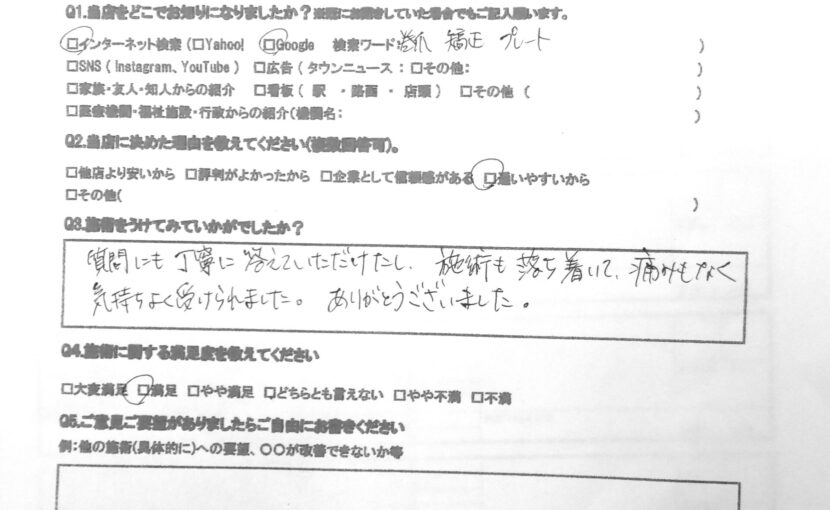 Q1.当店をどこでお知りになりましたか?※既にお聞きしていた場合でもご記入願います。
□インターネット検索(□Yahoo! □Google 検索ワード 巻爪 矯正 プレート )
□SNS( Instagram、YouTube ) □広告(タウンニュース:□その他: )
□家族・友人・知人からの紹介 □看板( 駅 ・路面 ・ 店頭 ) □その他 ( )
□医療機関・福祉施設・行政からの紹介(機関名: )
Q2.当店に決めた理由を教えてください(複数回答可)。
□他店より安いから □評判がよかったから □企業として信頼感がある □通いやすいから
□その他( )
Q3.施術をうけてみていかがでしたか?
質問にも丁寧に答えていただけたし、施術も落ち着いて、痛みもなく
気持ちよく受けられました。ありがとうございました。
Q4.施術に関する満足度を教えてください
□大変満足 □満足 □やや満足 □どちらとも言えない □やや不満 □不満
Q5.ご意見ご要望がありましたらご自由にお書きください
例:他の施術(具体的に)への要望、〇〇が改善できないか等